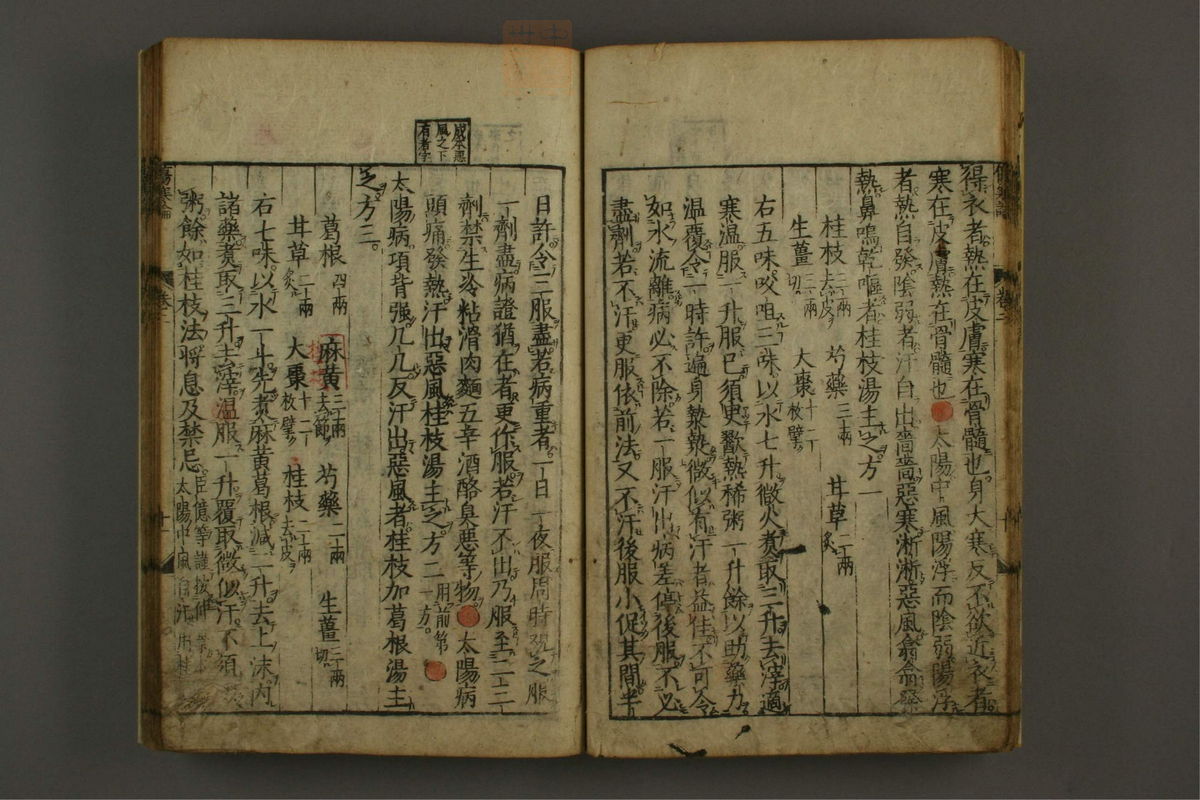 得衣者熱在皮膚寒在骨髓也身大寒反不欲近衣者
寒在皮膚熱在骨髓也太陽中風陽浮而陰弱陽浮
者熱自發陰弱者汗自出嗇嗇惡寒淅淅惡風翕翕發
熱鼻鳴乾嘔者桂枝湯主之方一
桂枝三兩去皮 芍藥三兩 甘草二兩炙
生薑三兩切 大棗十二枚擘
右五味㕮咀三味以水七升微火煮取三升去滓適
寒溫服一升服已須臾歠熱稀粥一升餘以助藥力
溫覆令一時許遍身漐漐微似有汗者益佳不可令
如水流離病必不除若一服汗出病差停後服不必
盡劑若不汗更服依前法又不汗後服小促其間半
成本惡
風之下
有者字
日許令三服盡若病重者一日一夜服周時觀之服
一劑盡病證猶在者更作服若汗不出乃服至二三
劑禁生冷粘滑肉麵五辛酒酪臭惡等物太陽病
頭痛發熱汗出惡風桂枝湯主之方二用前第一方
太陽病項背强几几反汗出惡風者桂枝加葛根湯主
之方三
葛根四兩 麻黄三兩去節 芍藥二兩 生薑三兩切
甘草二兩炙 大棗十二枚擘 桂枝二兩去皮
右七味以水一斗先煮麻黄葛根減二升去上沫内
諸藥煮取三升去滓溫服一升覆取微似汗不須
粥餘如桂枝法將息及禁忌臣億等謹按仲景本
太陽中風自汗用桂
傷寒論 卷二 十一